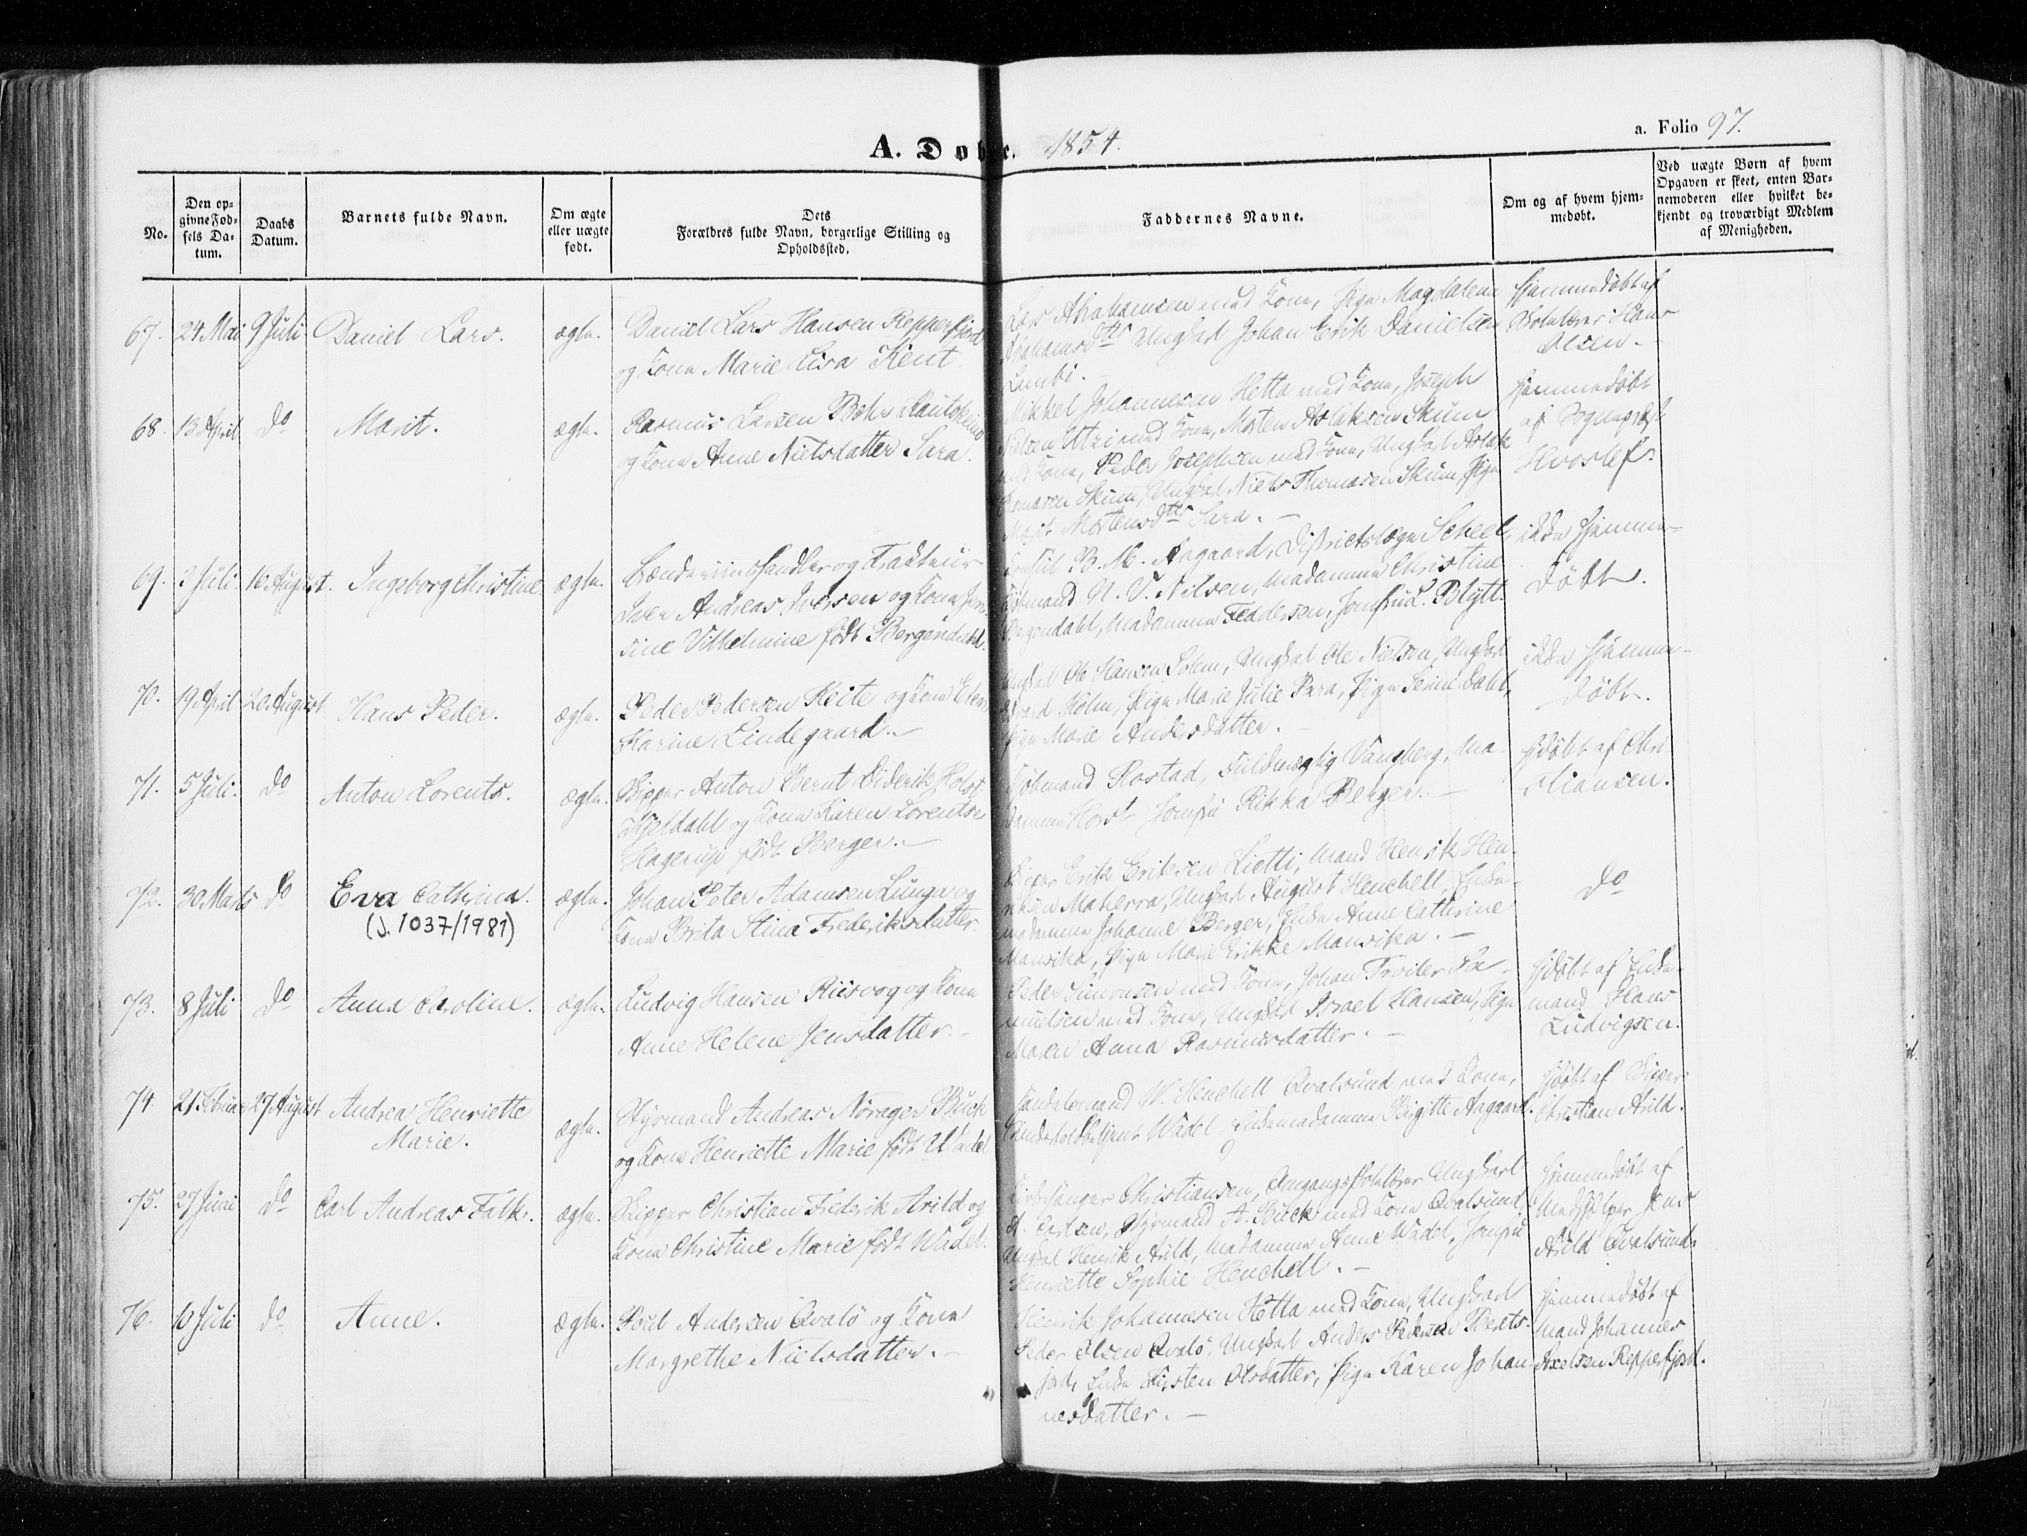 A. Døbte. 1854.
a. Folio 97.
No.
Den op-
givne Fød-
sels Da-
tum.
Daabs
Datum.
Barnets fulde Navn.
Om ægte
eller uægte
født.
Dets
Forældres fulde Navn, borgerlige Stilling og
Opholdssted.
Faddernes Navne.
Om og af hvem hjem-
medøbt.
Ved uægte Børn af hvem
Opgaven er skeet, enten Bar-
nemoderen eller hvilket be-
kjendt og troværdigt Medlem
af Menigheden.
67. 24 Mai 9 Juli Daniel Lars. ægte.
Daniel Lars Hansen Repperfjord
og Kone Marie Lisa Kent.
Lars Abrahamsen med Kone, Pige Magdalena
Abrahamsdtter Ungkal Johan Erik Danielsen
Lambi.
Hjemmedøbt af
Skolelærer Hans
Olsen.
68. 13 April do Marit. ægte.
Rasmus Larsen Bæhr Kautokeino
og Kone Anne Nielsdatter Sara.
Mikkel Johannesen Hetta med Kone, Joseph
Nielsen Utzi med Kone, Morten Aslaksen Skum
med Kone, Peder Josephsen med Kone, Ungkal Aslak
Skum, Ungkal Niels Thomasen Skum, Pige
Marit Mortensdtter Sara.
Hjemmedøbt
af Sognepræst
Hvoslef.
69. 2 Juli 16 August. Ingeborg Christine. ægte.
Brændeviinshandler og Tracteur
Iver Andreas Iversen og Kone Jen-
sine Vilhelmine født Bergendahl.
Consul B. M. Aagaard, Districtslæge Scheel,
Kjøbmand N. V. Nilsen, Madamme Christine
Bergendahl, Madamme Feddersen, Jomfru L. Blytt.
ikke hjemme-
døbt.
70. 19 April 20 August Hans Peder. ægte.
Peder Pedersen Keite og Kone Ellen
Karine Lindegaard.
Ungkal Ole Hansen Solem, Ungkal Ole Nielsen, Ungkal
Edvard Holm, Pige Marie Julie Para, Pige Serine Dahl,
Pige Marie Andersdatter.
ikke hjemme-
døbt.
71. 5 Juli do Anton Lorents. ægte.
Skipper Anton Bernt Diderik Holst
Kjeldahl og Kone Karen Lorentse
Hagerup født Berger.
Kjøbmand Rostad, Fuldmægtig Vangberg, Ma-
damme Horst Jomfru Rikka Berger.
Hjdøbt af Chri-
stiansen.
72. 30 Marts do Eva Cathrina. ægte.
(J. 1037/1981)
Johan Peter Adamsen Lunga og
Kone Brita Stina Frederiksdatter.
Skipper Erik Eriksen Lietti, Mand Henrik Hen-
riksen Maherra, Ungkal August Henchell, Enke-
madamme Johanne Berger, Enke Anne Cathrine
Mansika, Pige Marie Erikke Mansika.
do
73. 8 Juli do Anna Caroline. ægte.
Ludvig Hansen Riisvog og Kone
Anne Helene Jensdatter.
Peder Simonsen med Kone, Johan Troiler Sa-
muelsen med Kone, Ungkal Israel Hansen, Pige
Maren Anna Rasmusdatter.
Hjdøbt af Enke-
mand Hans
Ludvigsen.
74 21 Februar 27 August Andrea Henriette
Marie. ægte.
Styrmand Andreas Nørager Buck
og Kone Henriette Marie født Wadel
Handelsmand W. Henchell Qvalsund med Kone,
Wadel Enkemadamme Birgitte Aagaard.
Hjdøbt af Skipper
Christian Arild.
75. 27 Juni do Carl Andreas Falk. ægte.
Skipper Christian Frederik Arild og
Kone Christine Marie født Wadel.
Kirkesanger Christiansen, Omgangsskolelærer Ungkarl
Carlsen, Styrmand A. Buck med Kone Qvalsund,
Ungkal Henrik Arild, Madamme Anne Wadel, Jomfru
Henriette Sophie Henchell.
Hjemmedøbt af
Medhjelper Jens
Arild Qvalsund.
76. 10 Juli do Anne. ægte.
Poul Andersen Qvalø og Kone
Margrethe Nielsdatter.
Henrik Johannesen Hetta med Kone, Ungkarl
Peder Olsen Qvalø, Ungkarl Anders Pedersen Beets-
fjord, Enke Kirsten Olsdatter, Pige Karen Johan-
nesdatter.
Hjemmedøbt af
Mand Johannes
Axelsen Repperfjord.